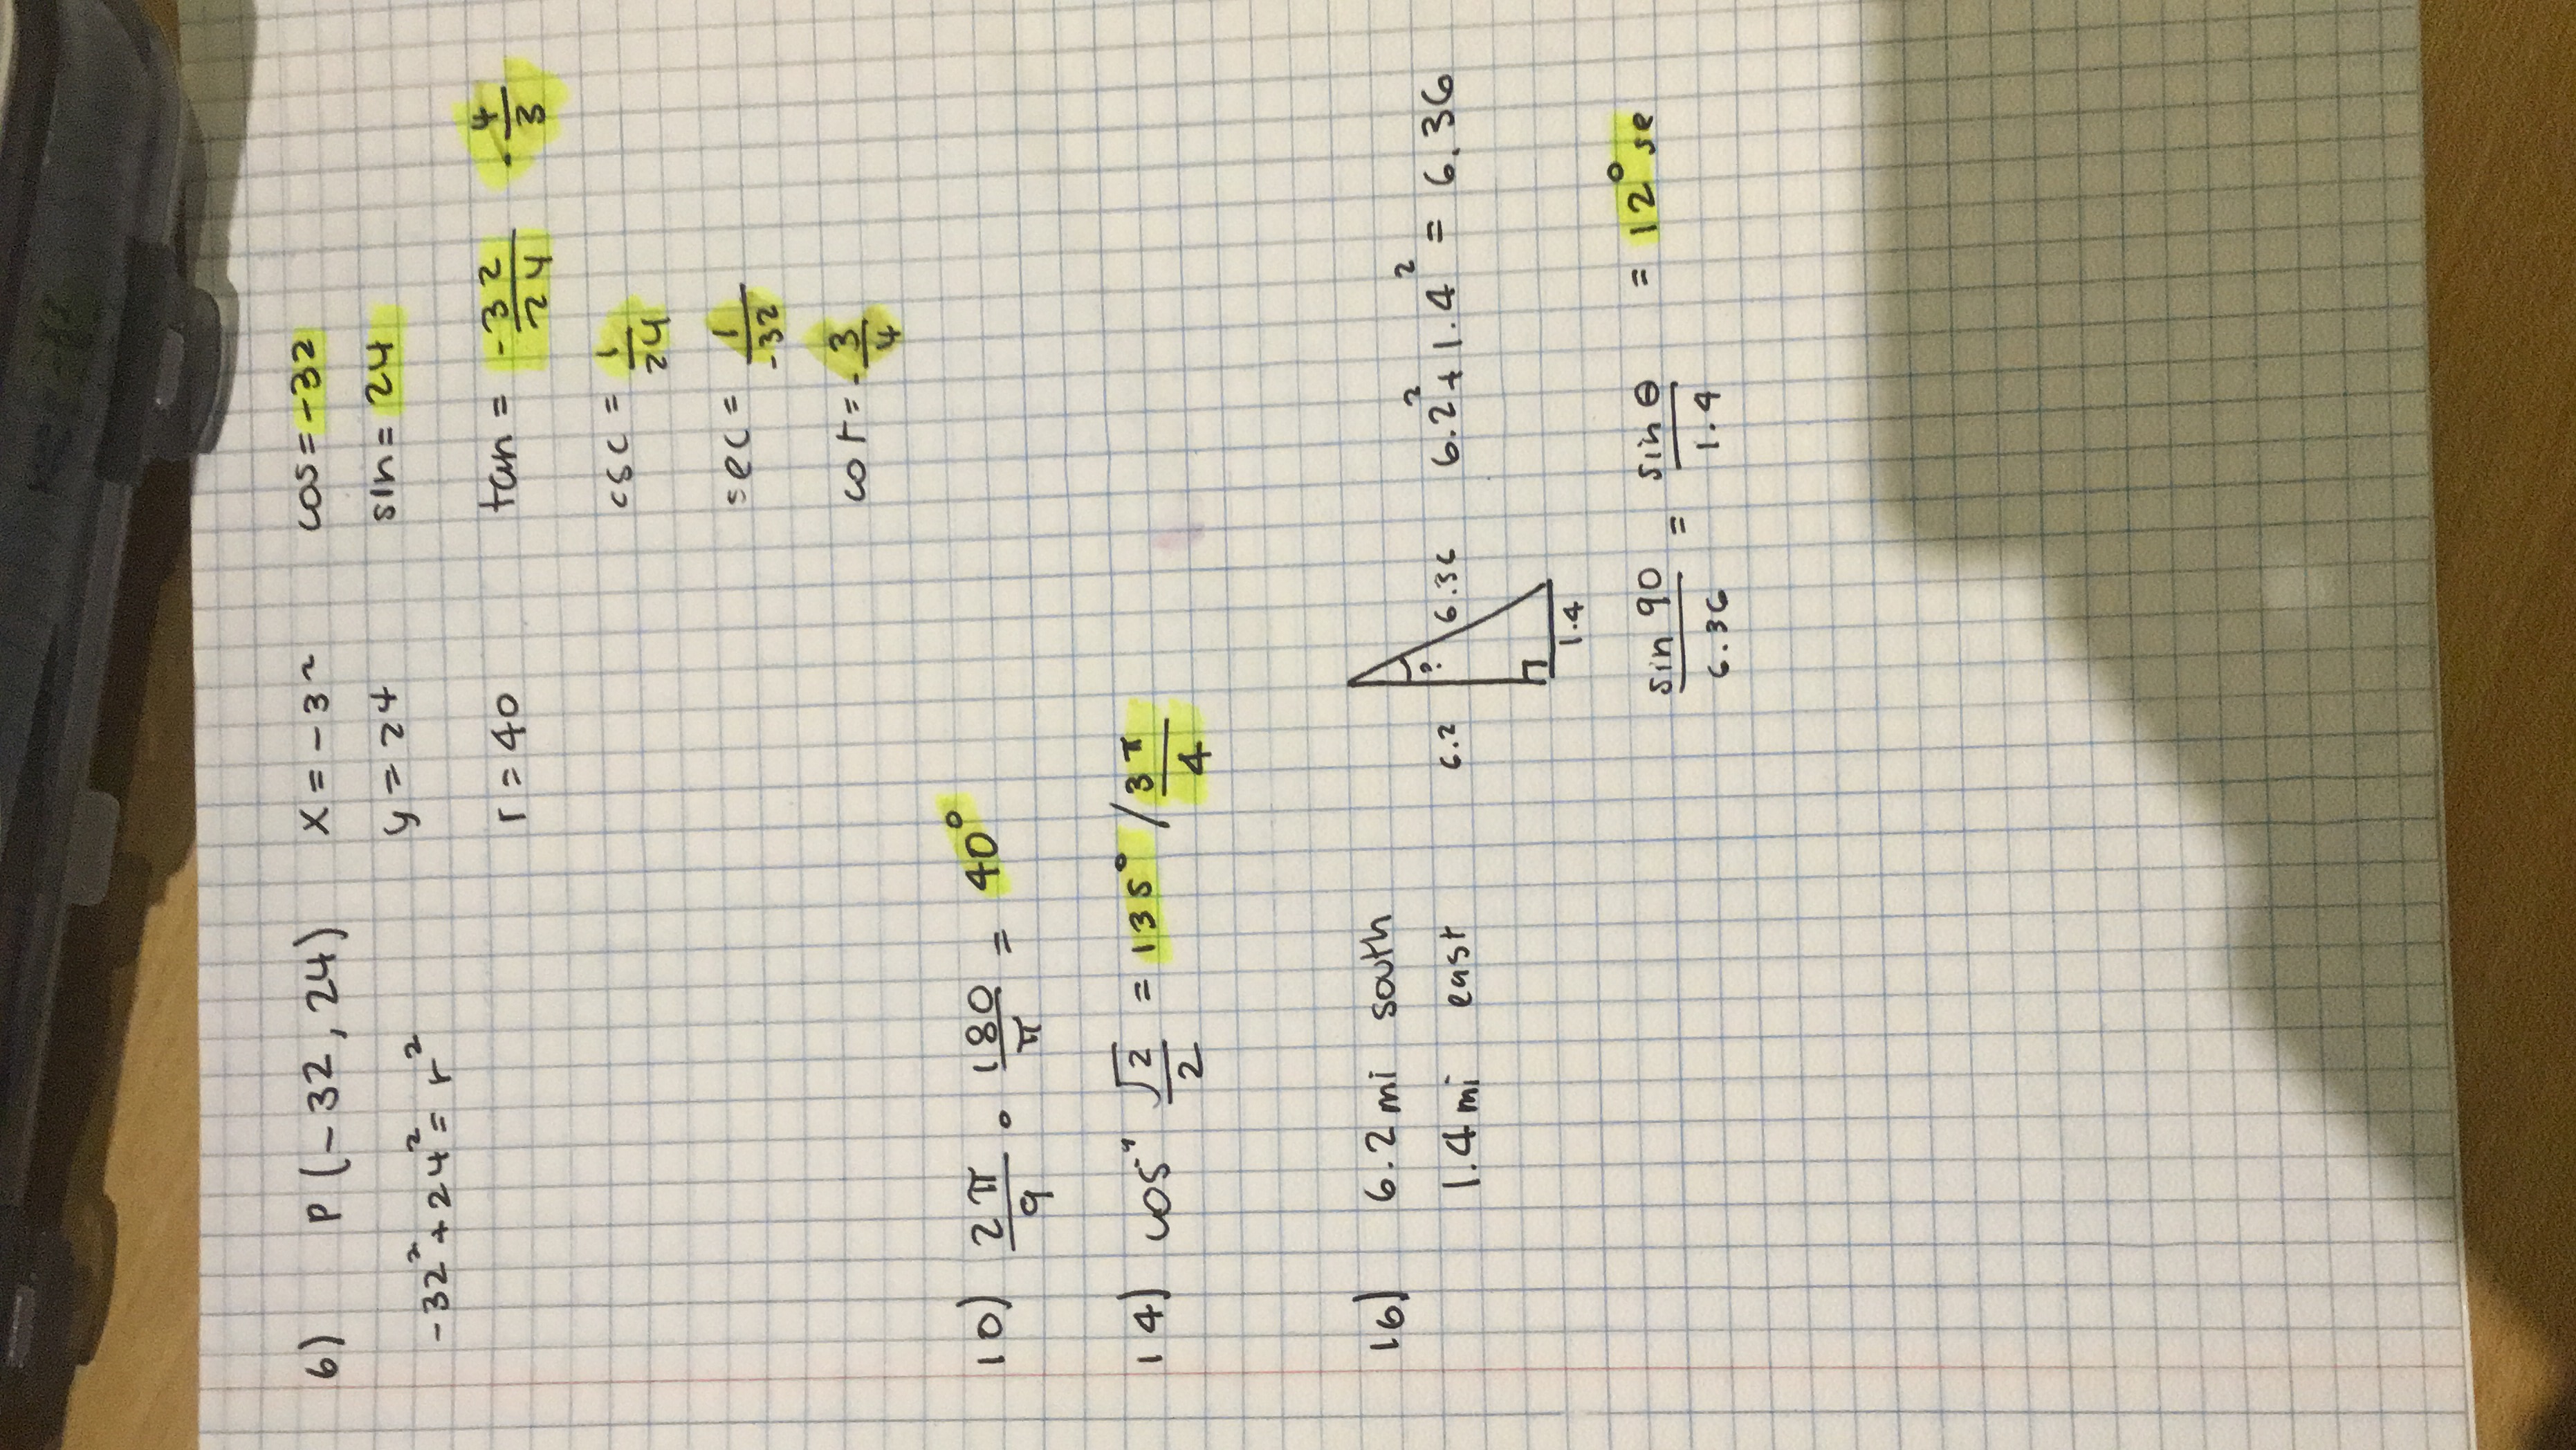 6) P (-32, 24) x = -32 cos = -32
-32² + 24² = r² y = 24 sin = 24
r = 40 tan = -32/24 · 4/3
csc = 1/24
sec = 1/-32
cot = -3/4
10) 2π/9 · 180/π = 40°
14) cos⁻¹ √2/2 = 135° / 3π/4
16) 6.2 mi south 6.2 ? 6.36 6.2² + 1.4² = 6.36
1.4 mi east 1.4
sin 90/6.36 = sin θ/1.4 = 12° se